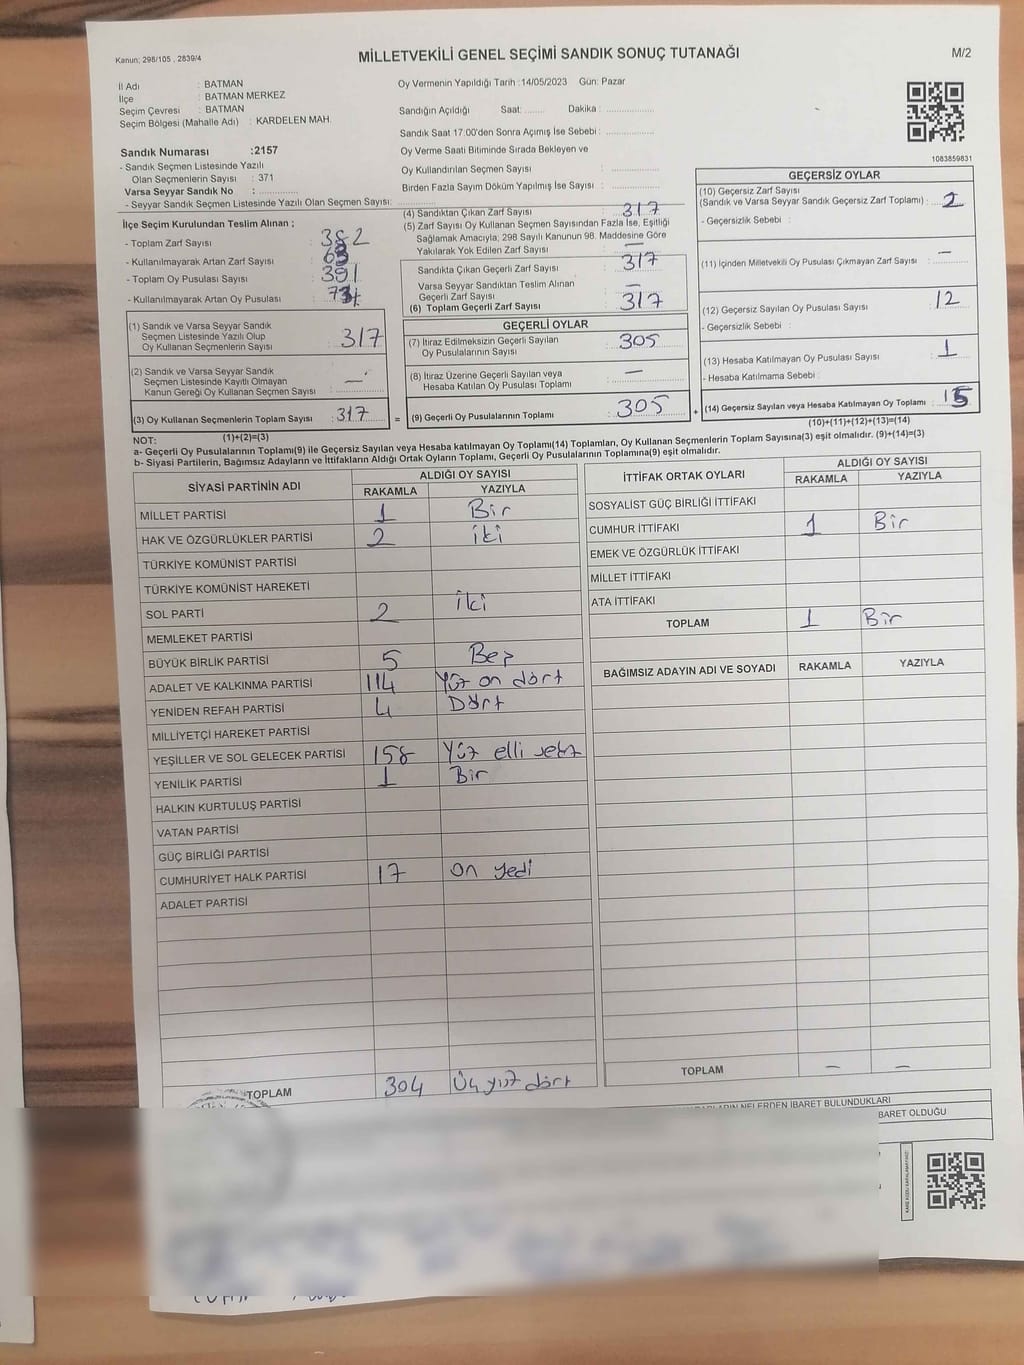 Kanun; 298/105 , 2839/4
MİLLETVEKİLİ GENEL SEÇİMİ SANDIK SONUÇ TUTANAĞI
M/2
İl Adı : BATMAN
İlçe : BATMAN MERKEZ
Seçim Çevresi : BATMAN
Seçim Bölgesi (Mahalle Adı) : KARDELEN MAH.
Oy Vermenin Yapıldığı Tarih :14/05/2023 Gün: Pazar
Sandığın Açıldığı Saat: ........ Dakika : ..................
Sandık Saat 17.00'den Sonra Açımış İse Sebebi : ..................
Oy Verme Saati Bitiminde Sırada Bekleyen ve
Oy Kullandırılan Seçmen Sayısı : ..................
Birden Fazla Sayım Döküm Yapılmış İse Sayısı : ..................
1083859831
Sandık Numarası :2157
- Sandık Seçmen Listesinde Yazılı
Olan Seçmenlerin Sayısı : 371
Varsa Seyyar Sandık No : ..............
- Seyyar Sandık Seçmen Listesinde Yazılı Olan Seçmen Sayısı: ..............
İlçe Seçim Kurulundan Teslim Alınan ;
- Toplam Zarf Sayısı : 382
- Kullanılmayarak Artan Zarf Sayısı :
- Toplam Oy Pusulası Sayısı : 391
- Kullanılmayarak Artan Oy Pusulası :
(1) Sandık ve Varsa Seyyar Sandık
Seçmen Listesinde Yazılı Olup
Oy Kullanan Seçmenlerin Sayısı : 317
(2) Sandık ve Varsa Seyyar Sandık
Seçmen Listesinde Kayıtlı Olmayan
Kanun Gereği Oy Kullanan Seçmen Sayısı : —
(3) Oy Kullanan Seçmenlerin Toplam Sayısı : 317
(1)+(2)=(3)
(4) Sandıktan Çıkan Zarf Sayısı : 317
(5) Zarf Sayısı Oy Kullanan Seçmen Sayısından Fazla İse, Eşitliği
Sağlamak Amacıyla; 298 Sayılı Kanunun 98. Maddesine Göre
Yakılarak Yok Edilen Zarf Sayısı : —
Sandıkta Çıkan Geçerli Zarf Sayısı : 317
Varsa Seyyar Sandıktan Teslim Alınan
Geçerli Zarf Sayısı : —
(6) Toplam Geçerli Zarf Sayısı : 317
GEÇERLİ OYLAR
(7) İtiraz Edilmeksizin Geçerli Sayılan
Oy Pusulalarının Sayısı : 305
(8) İtiraz Üzerine Geçerli Sayılan veya
Hesaba Katılan Oy Pusulası Toplamı : —
= (9) Geçerli Oy Pusulalarının Toplamı : 305 +
GEÇERSİZ OYLAR
(10) Geçersiz Zarf Sayısı
(Sandık ve Varsa Seyyar Sandık Geçersiz Zarf Toplamı) : 2
- Geçersizlik Sebebi :
(11) İçinden Milletvekili Oy Pusulası Çıkmayan Zarf Sayısı : —
(12) Geçersiz Sayılan Oy Pusulası Sayısı : 12
- Geçersizlik Sebebi :
(13) Hesaba Katılmayan Oy Pusulası Sayısı : 1
- Hesaba Katılmama Sebebi :
(14) Geçersiz Sayılan veya Hesaba Katılmayan Oy Toplamı : 15
(10)+(11)+(12)+(13)=(14)
NOT:
a- Geçerli Oy Pusulalarının Toplamı(9) ile Geçersiz Sayılan veya Hesaba katılmayan Oy Toplamı(14) Toplamları, Oy Kullanan Seçmenlerin Toplam Sayısına(3) eşit olmalıdır. (9)+(14)=(3)
b- Siyasi Partilerin, Bağımsız Adayların ve İttifakların Aldığı Ortak Oyların Toplamı, Geçerli Oy Pusulalarının Toplamına(9) eşit olmalıdır.
SİYASİ PARTİNİN ADI ALDIĞI OY SAYISI
RAKAMLA YAZIYLA
MİLLET PARTİSİ 1 Bir
HAK VE ÖZGÜRLÜKLER PARTİSİ 2 iki
TÜRKİYE KOMÜNİST PARTİSİ
TÜRKİYE KOMÜNİST HAREKETİ
SOL PARTİ 2 iki
MEMLEKET PARTİSİ
BÜYÜK BİRLİK PARTİSİ 5 Beş
ADALET VE KALKINMA PARTİSİ 114 Yüz on dört
YENİDEN REFAH PARTİSİ 4 Dört
MİLLİYETÇİ HAREKET PARTİSİ
YEŞİLLER VE SOL GELECEK PARTİSİ 158 Yüz elli sekiz
YENİLİK PARTİSİ 1 Bir
HALKIN KURTULUŞ PARTİSİ
VATAN PARTİSİ
GÜÇ BİRLİĞİ PARTİSİ
CUMHURİYET HALK PARTİSİ 17 On yedi
ADALET PARTİSİ
TOPLAM 304 Üç yüz dört
İTTİFAK ORTAK OYLARI ALDIĞI OY SAYISI
RAKAMLA YAZIYLA
SOSYALİST GÜÇ BİRLİĞİ İTTİFAKI
CUMHUR İTTİFAKI 1 Bir
EMEK VE ÖZGÜRLÜK İTTİFAKI
MİLLET İTTİFAKI
ATA İTTİFAKI
TOPLAM 1 Bir
BAĞIMSIZ ADAYIN ADI VE SOYADI RAKAMLA YAZIYLA
TOPLAM — —
NELERDEN İBARET BULUNDUKLARI
BARET OLDUĞU